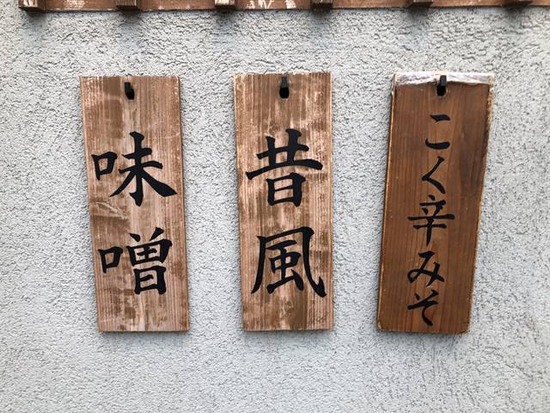 味噌
昔風
こく辛みそ